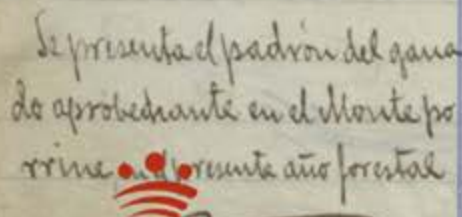 Se presenta el padrón del gana
do aprobechante en el Monte po
rrine, en el presente año forestal